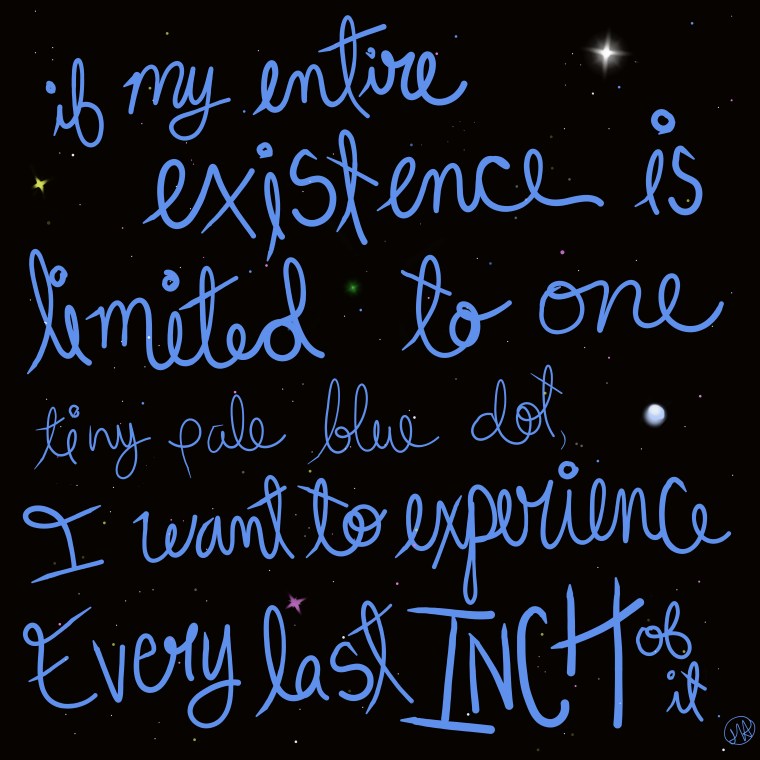 if my entire
existence is
limited to one
tiny pale blue dot,
I want to experience
Every last INCH of
it